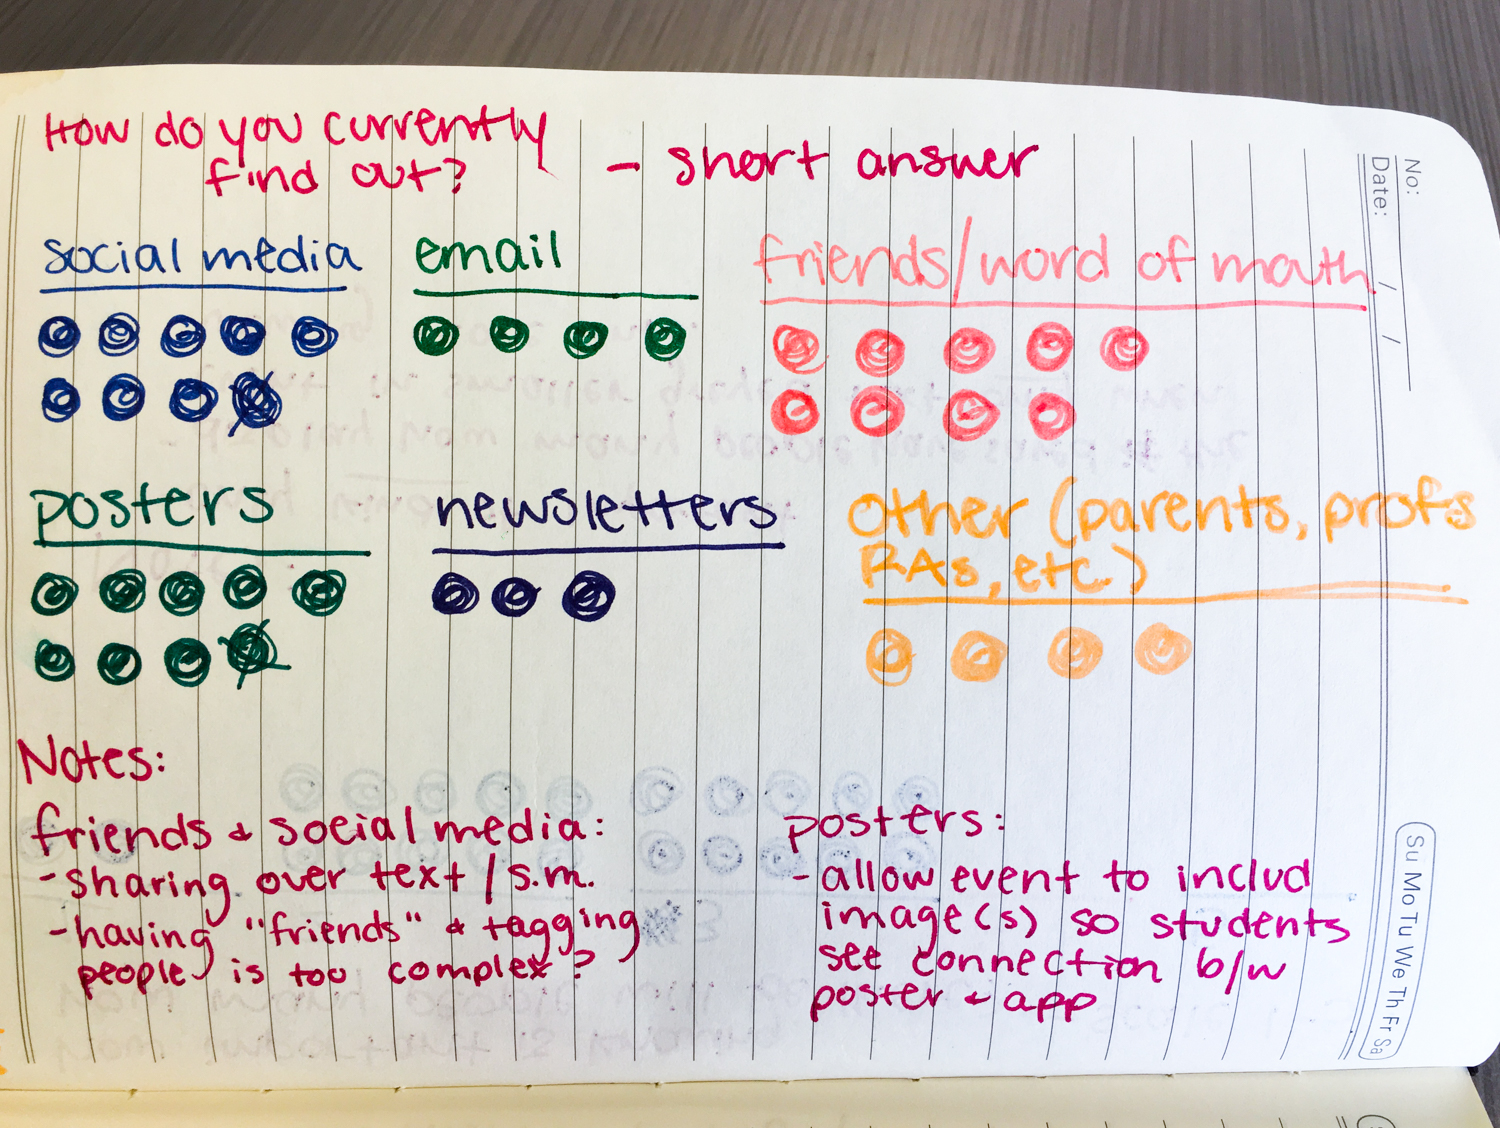 How do you currently
find out?
- short answer
social media
email
friends/word of mouth
posters
newsletters
other (parents, profs
RAs, etc.)
Notes:
friends & social media:
- sharing over text / s.m.
- having "friends" & tagging
people is too complex?
posters:
- allow event to includ
image(s) so students
see connection b/w
poster & app
No:
Date: / /
Su Mo Tu We Th Fr Sa